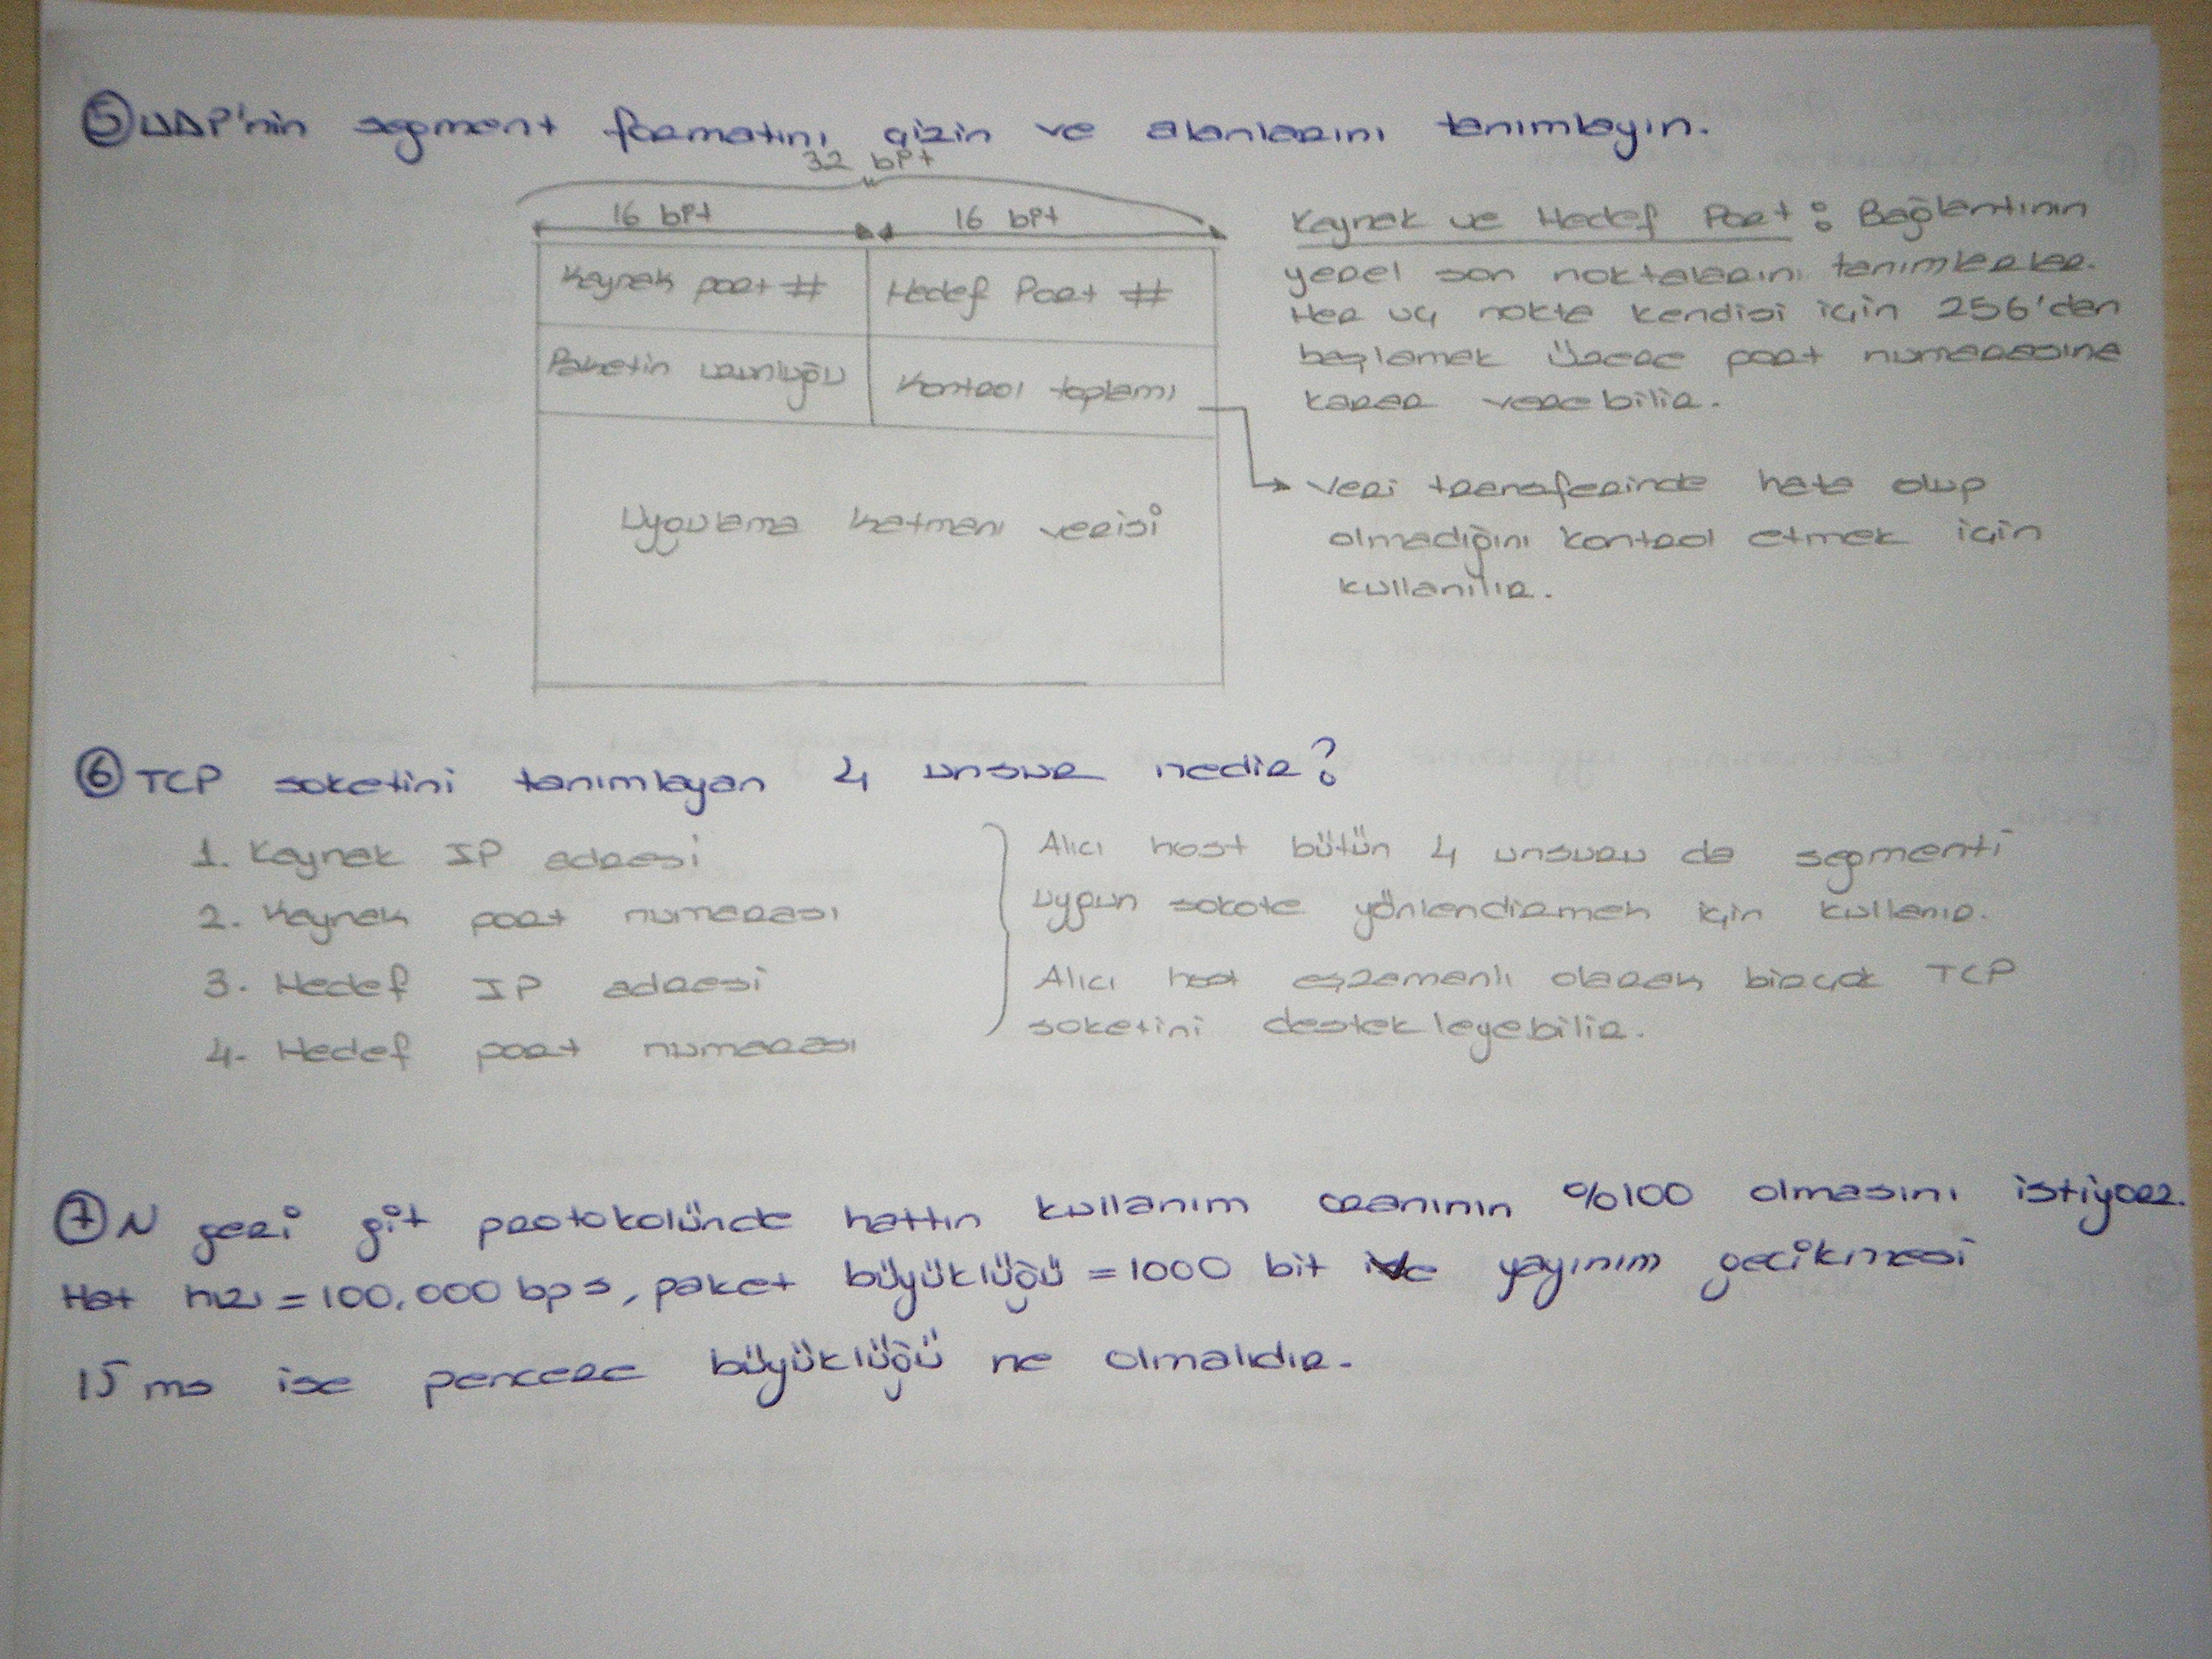 ⑤ UDP'nin segment formatını çizin ve alanlarını tanımlayın.
32 bit
16 bit 16 bit
Kaynak port # Hedef Port #
Paketin uzunluğu Kontrol toplamı
Uygulama katmanı verisi
Kaynak ve Hedef Port : Bağlantının
yerel son noktalarını tanımlarlar.
Her uç nokta kendisi için 256'dan
başlamak üzere port numarasına
karar verebilir.
Veri transferinde hata olup
olmadığını kontrol etmek için
kullanılır.
⑥ TCP soketini tanımlayan 4 unsur nedir?
1. Kaynak IP adresi
2. Kaynak port numarası
3. Hedef IP adresi
4. Hedef port numarası
Alıcı host bütün 4 unsuru da segmenti
uygun sokete yönlendirmek için kullanır.
Alıcı host eşzamanlı olarak birçok TCP
soketini destekleyebilir.
⑦ N geri git protokolünde hattın kullanım oranının %100 olmasını istiyorz.
Hat hızı = 100,000 bps, paket büyüklüğü = 1000 bit ve yayınım gecikmesi
15 ms ise pencere büyüklüğü ne olmalıdır.